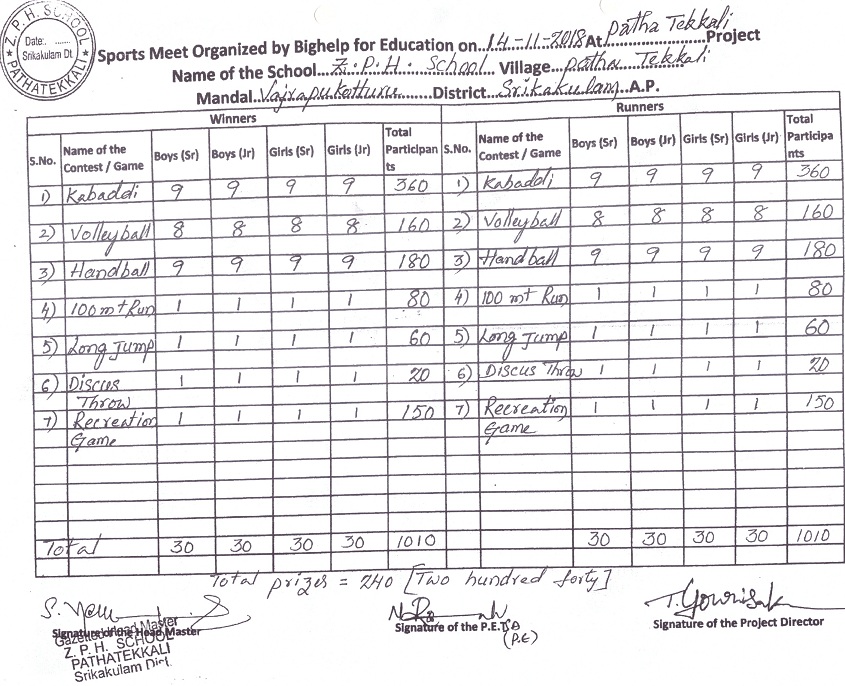 Z. P. H. SCHOOL
Date:........
Srikakulam Dt.
PATHATEKKALI
Sports Meet Organized by Bighelp for Education on...14-11-2018 At Patha Tekkali Project
Name of the School...Z.P.H. School Village...Patha Tekkali
Mandal Vajrapukotturu District Srikakulam A.P.
Winners Runners
S.No. Name of the Contest / Game Boys (Sr) Boys (Jr) Girls (Sr) Girls (Jr) Total Participan ts S.No. Name of the Contest / Game Boys (Sr) Boys (Jr) Girls (Sr) Girls (Jr) Total Participa nts
1) Kabaddi 9 9 9 9 360 1) Kabaddi 9 9 9 9 360
2) Volleyball 8 8 8 8 160 2) Volleyball 8 8 8 8 160
3) Handball 9 9 9 9 180 3) Handball 9 9 9 9 180
4) 100 mt Run 1 1 1 1 80 4) 100 mt Run 1 1 1 1 80
5) Long Jump 1 1 1 1 60 5) Long Jump 1 1 1 1 60
6) Discus Throw 1 1 1 1 20 6) Discus Throw 1 1 1 1 20
7) Recreation Game 1 1 1 1 150 7) Recreation Game 1 1 1 1 150
Total 30 30 30 30 1010 30 30 30 30 1010
Total prizes = 240 [Two hundred forty]
T. Gowrisak
Signature of the Head Master Signature of the P.E.T
(P.E) Signature of the Project Director
Gazetted Head Master
Z. P. H. SCHOOL
PATHATEKKALI
Srikakulam Dist.